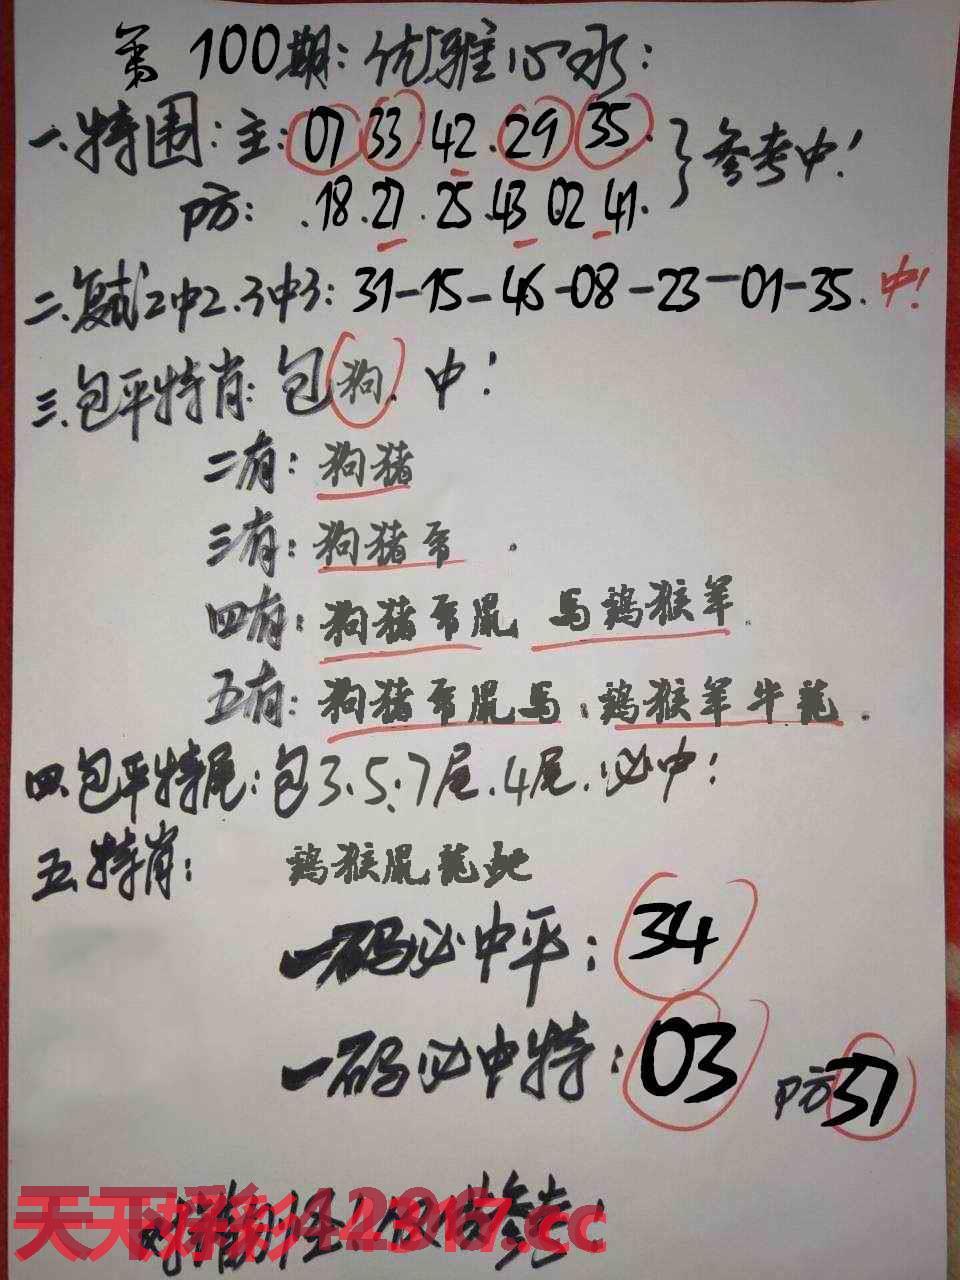 第100期:优雅心水:
一.特围:主:07 33 42.29 35. }参考中!
防:.18.27.25.43 02 41.
二.复式2中2.3中3: 31-15-46-08-23-01-35.中!
三.包平特肖:包狗.中!
二有:狗猪
三有:狗猪虎.
四有:狗猪虎鼠 马鸡猴羊.
五有:狗猪虎鼠马.鸡猴羊牛龍.
四.包平特尾:包3.5.7尾.4尾.必中!
五.特肖: 鸡猴鼠龍蛇
一码必中平:34
一码必中特:03 防37
天下彩 12317.cc